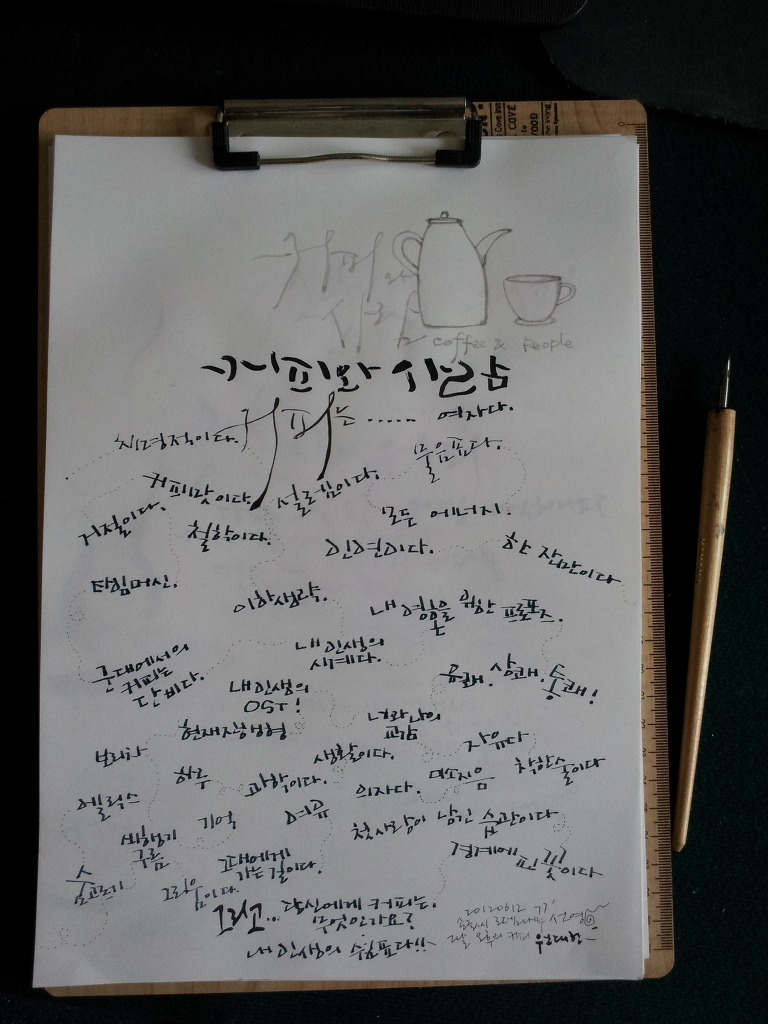 커피와
사람
coffee & People
커피와 사람
커피는 ...... 여자다.
치명적이다.
물음표다.
커피맛이다.
설레임이다.
거절이다.
철학이다.
모든 에너지.
인연이다.
한 잔만이다
타임머신.
이하생략.
내 영혼을 위한 프로포즈.
군대에서의
커피는
단비다.
내 인생의
세계다.
유쾌. 상쾌. 통쾌!
내 인생의
OST!
현재진행형
너와 나의
교감
자유다
보리차
하루
생활이다.
과학이다.
의자다.
미소지음
착한술이다
에릭스
비행기
구름
기억
여유
첫사랑이 남긴 습관이다
숨고르기
그리움이다.
그대에게
가는 길이다.
경계에 핀 꽃이다
그리고... 당신에게 커피는.
무엇인가요?
내 인생의 쉼표다!!
20120612
오후의 커피